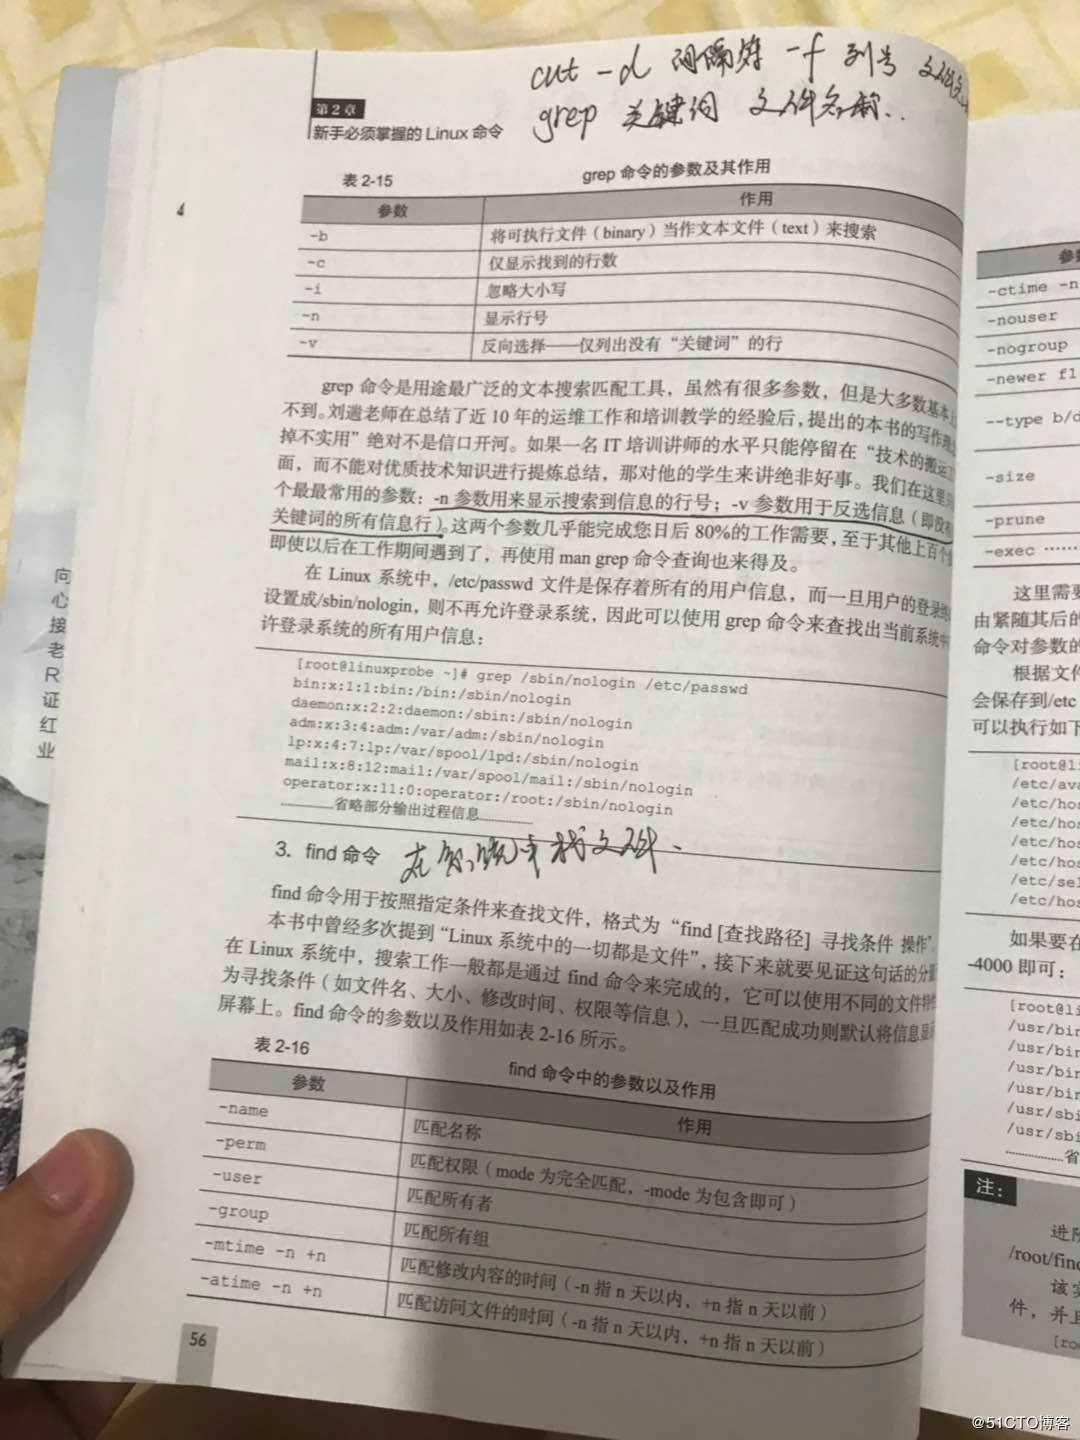 cut -d 间隔符 -f 列号 文件名
grep 关键词 文件名称..
第2章
新手必须掌握的 Linux 命令
表 2-15
grep 命令的参数及其作用
参数 作用
-b 将可执行文件（binary）当作文本文件（text）来搜索
-c 仅显示找到的行数
-i 忽略大小写
-n 显示行号
-v 反向选择——仅列出没有“关键词”的行
grep 命令是用途最广泛的文本搜索匹配工具，虽然有很多参数，但是大多数基本上
不到。刘遄老师在总结了近 10 年的运维工作和培训教学的经验后，提出的本书的写作理
掉不实用”绝对不是信口开河。如果一名 IT 培训讲师的水平只能停留在“技术的搬运工
面，而不能对优质技术知识进行提炼总结，那对他的学生来讲绝非好事。我们在这里
个最最常用的参数：-n 参数用来显示搜索到信息的行号；-v 参数用于反选信息（即没有
关键词的所有信息行）。这两个参数几乎能完成您日后 80%的工作需要，至于其他上百个
即使以后在工作期间遇到了，再使用 man grep 命令查询也来得及。
在 Linux 系统中，/etc/passwd 文件是保存着所有的用户信息，而一旦用户的登录终
设置成/sbin/nologin，则不再允许登录系统，因此可以使用 grep 命令来查找出当前系统中
许登录系统的所有用户信息：
[root@linuxprobe ~]# grep /sbin/nologin /etc/passwd
bin:x:1:1:bin:/bin:/sbin/nologin
daemon:x:2:2:daemon:/sbin:/sbin/nologin
adm:x:3:4:adm:/var/adm:/sbin/nologin
lp:x:4:7:lp:/var/spool/lpd:/sbin/nologin
mail:x:8:12:mail:/var/spool/mail:/sbin/nologin
operator:x:11:0:operator:/root:/sbin/nologin
………………省略部分输出过程信息………………
3. find 命令
find 命令用于按照指定条件来查找文件，格式为“find [查找路径] 寻找条件 操作”。
本书中曾经多次提到“Linux 系统中的一切都是文件”，接下来就要见证这句话的分量
在 Linux 系统中，搜索工作一般都是通过 find 命令来完成的，它可以使用不同的文件特性
为寻找条件（如文件名、大小、修改时间、权限等信息），一旦匹配成功则默认将信息显示
屏幕上。find 命令的参数以及作用如表 2-16 所示。
表 2-16
find 命令中的参数以及作用
参数 作用
-name 匹配名称
-perm 匹配权限（mode 为完全匹配，-mode 为包含即可）
-user 匹配所有者
-group 匹配所有组
-mtime -n +n 匹配修改内容的时间（-n 指 n 天以内，+n 指 n 天以前）
-atime -n +n 匹配访问文件的时间（-n 指 n 天以内，+n 指 n 天以前）
56
向
心
接
老
R
证
红
业
参
-ctime -n
-nouser
-nogroup
-newer f1
--type b/d
-size
-prune
-exec ……
这里需要
由紧随其后的
命令对参数的
根据文件
会保存到/etc
可以执行如下
[root@li
/etc/ava
/etc/hos
/etc/hos
/etc/hos
/etc/hos
/etc/sel
/etc/hos
如果要在
-4000 即可：
[root@li
/usr/bin
/usr/bin
/usr/bin
/usr/bin
/usr/sbi
/usr/sbi
………………省
注：
进阶
/root/find
该实
件，并且
[ro
@51CTO博客